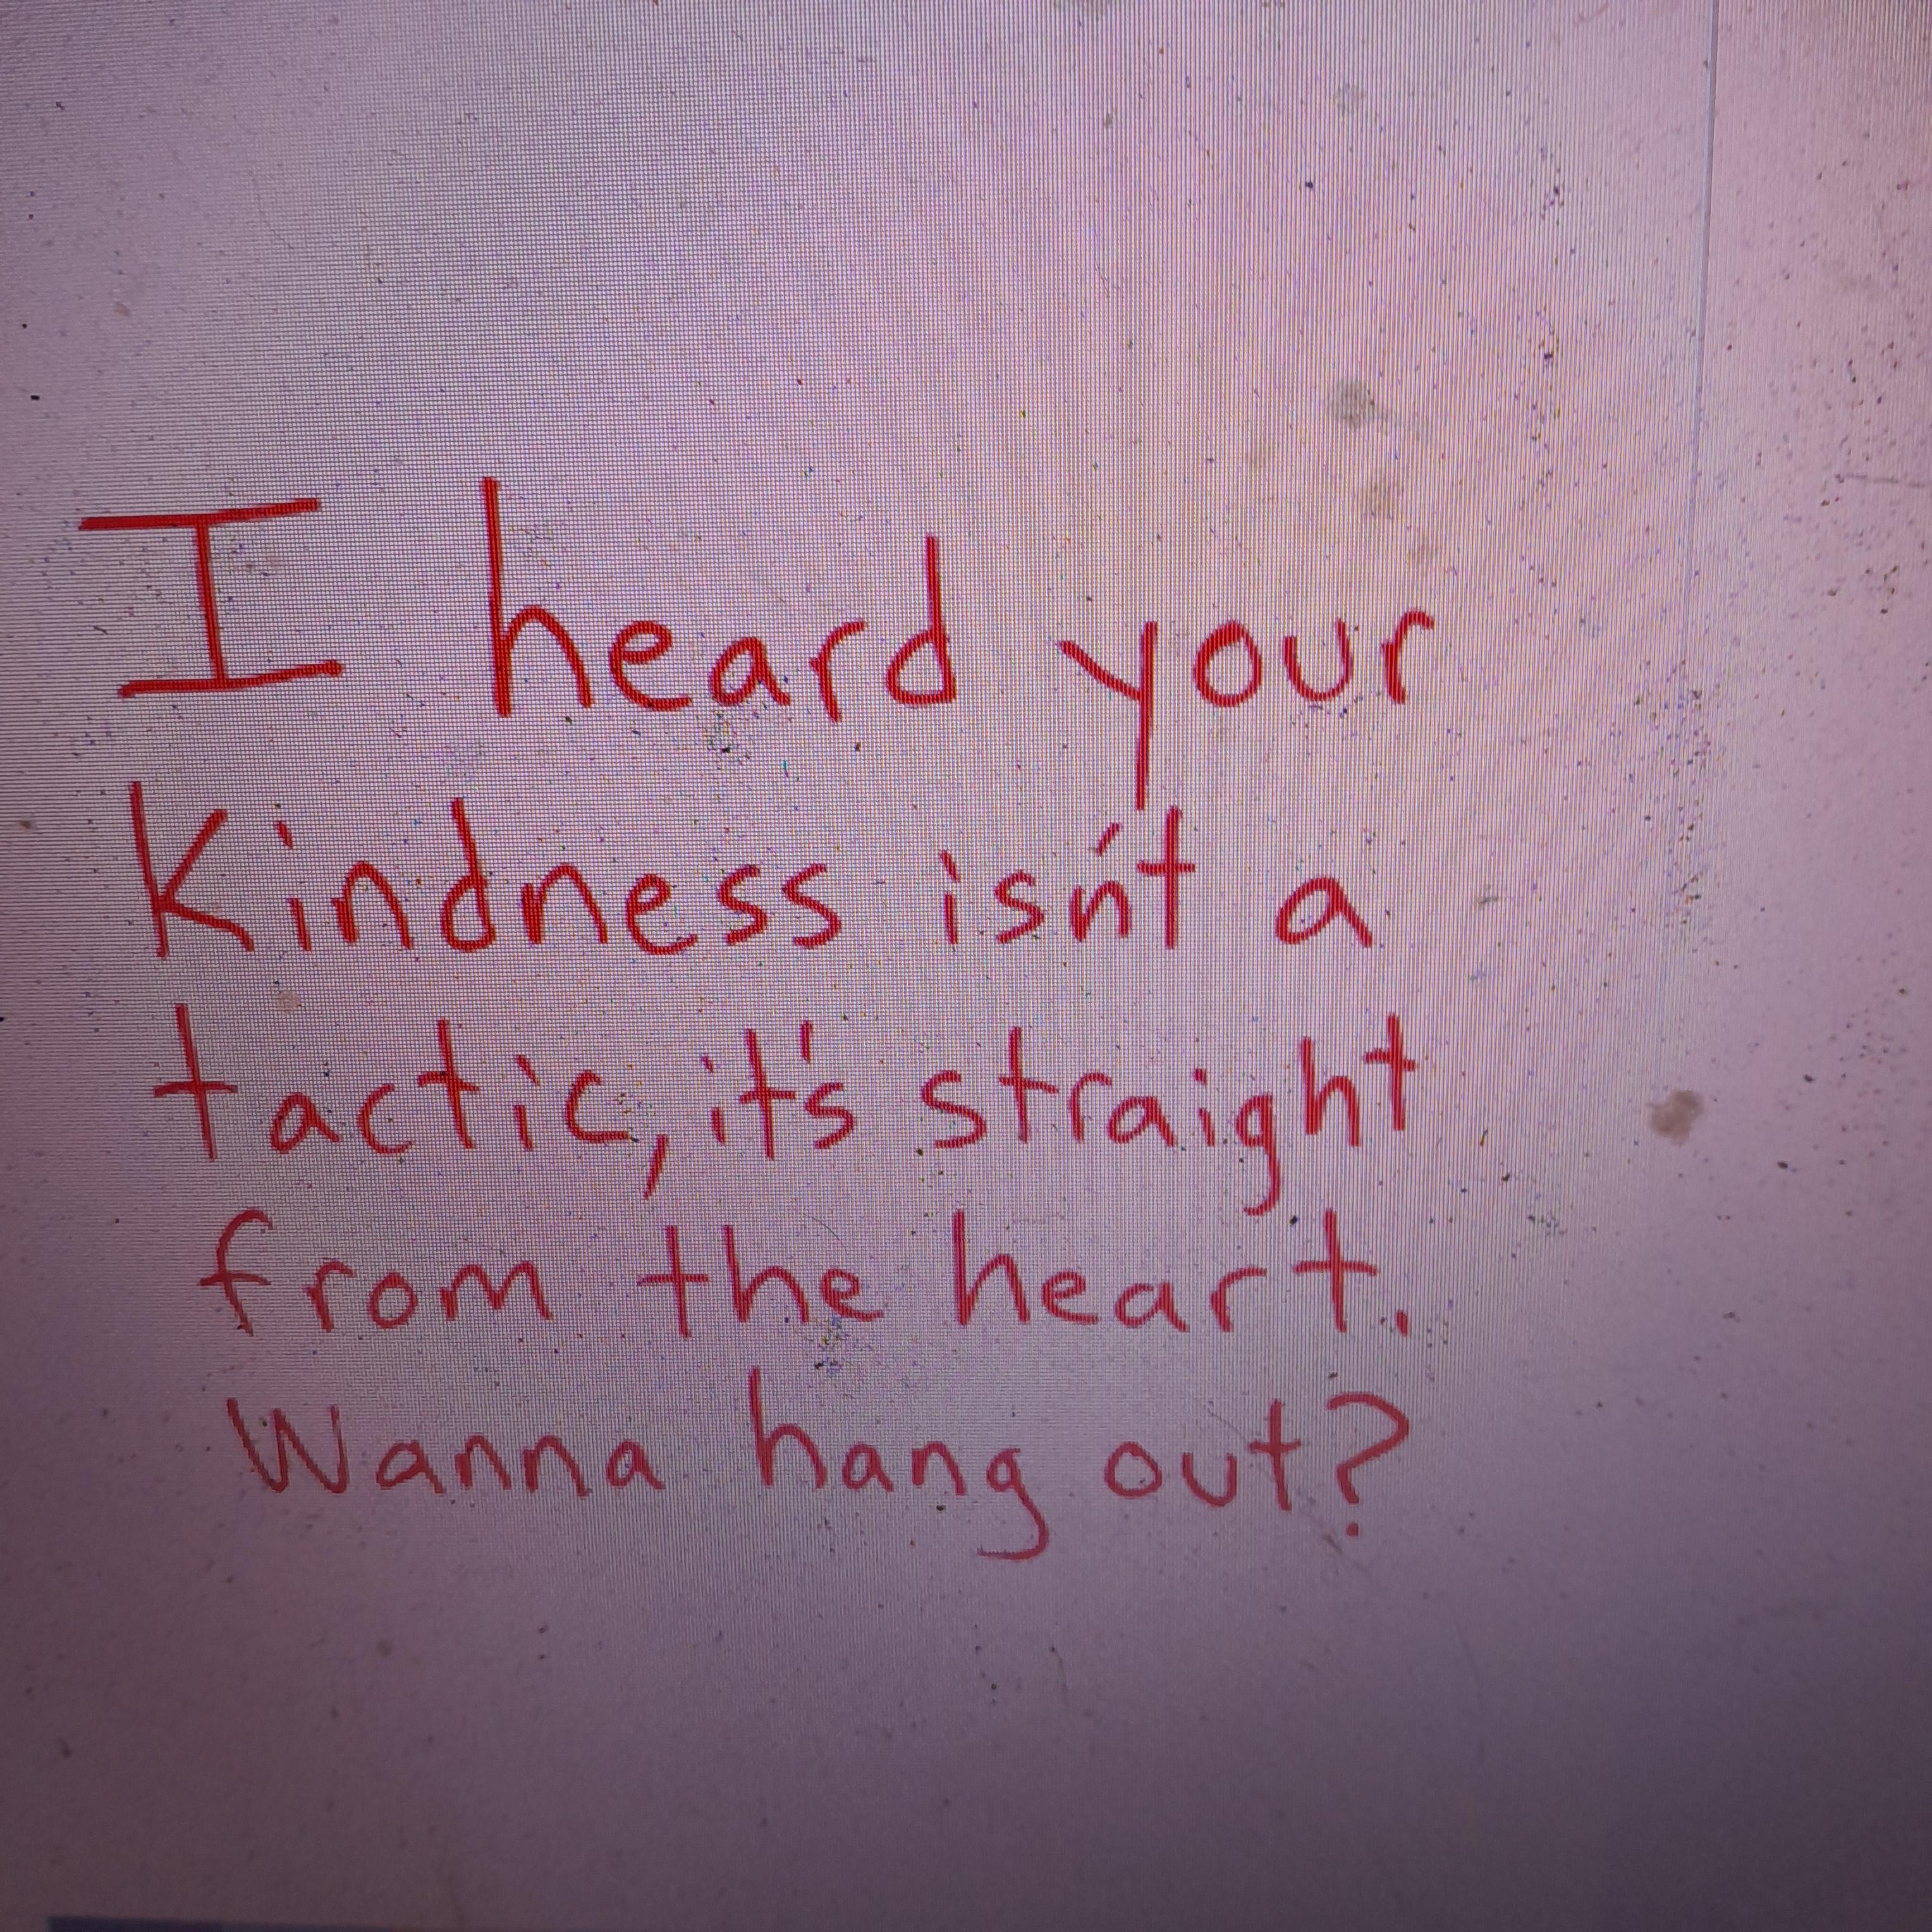 I heard your
Kindness isn't a
tactic, it's straight
from the heart.
Wanna hang out?